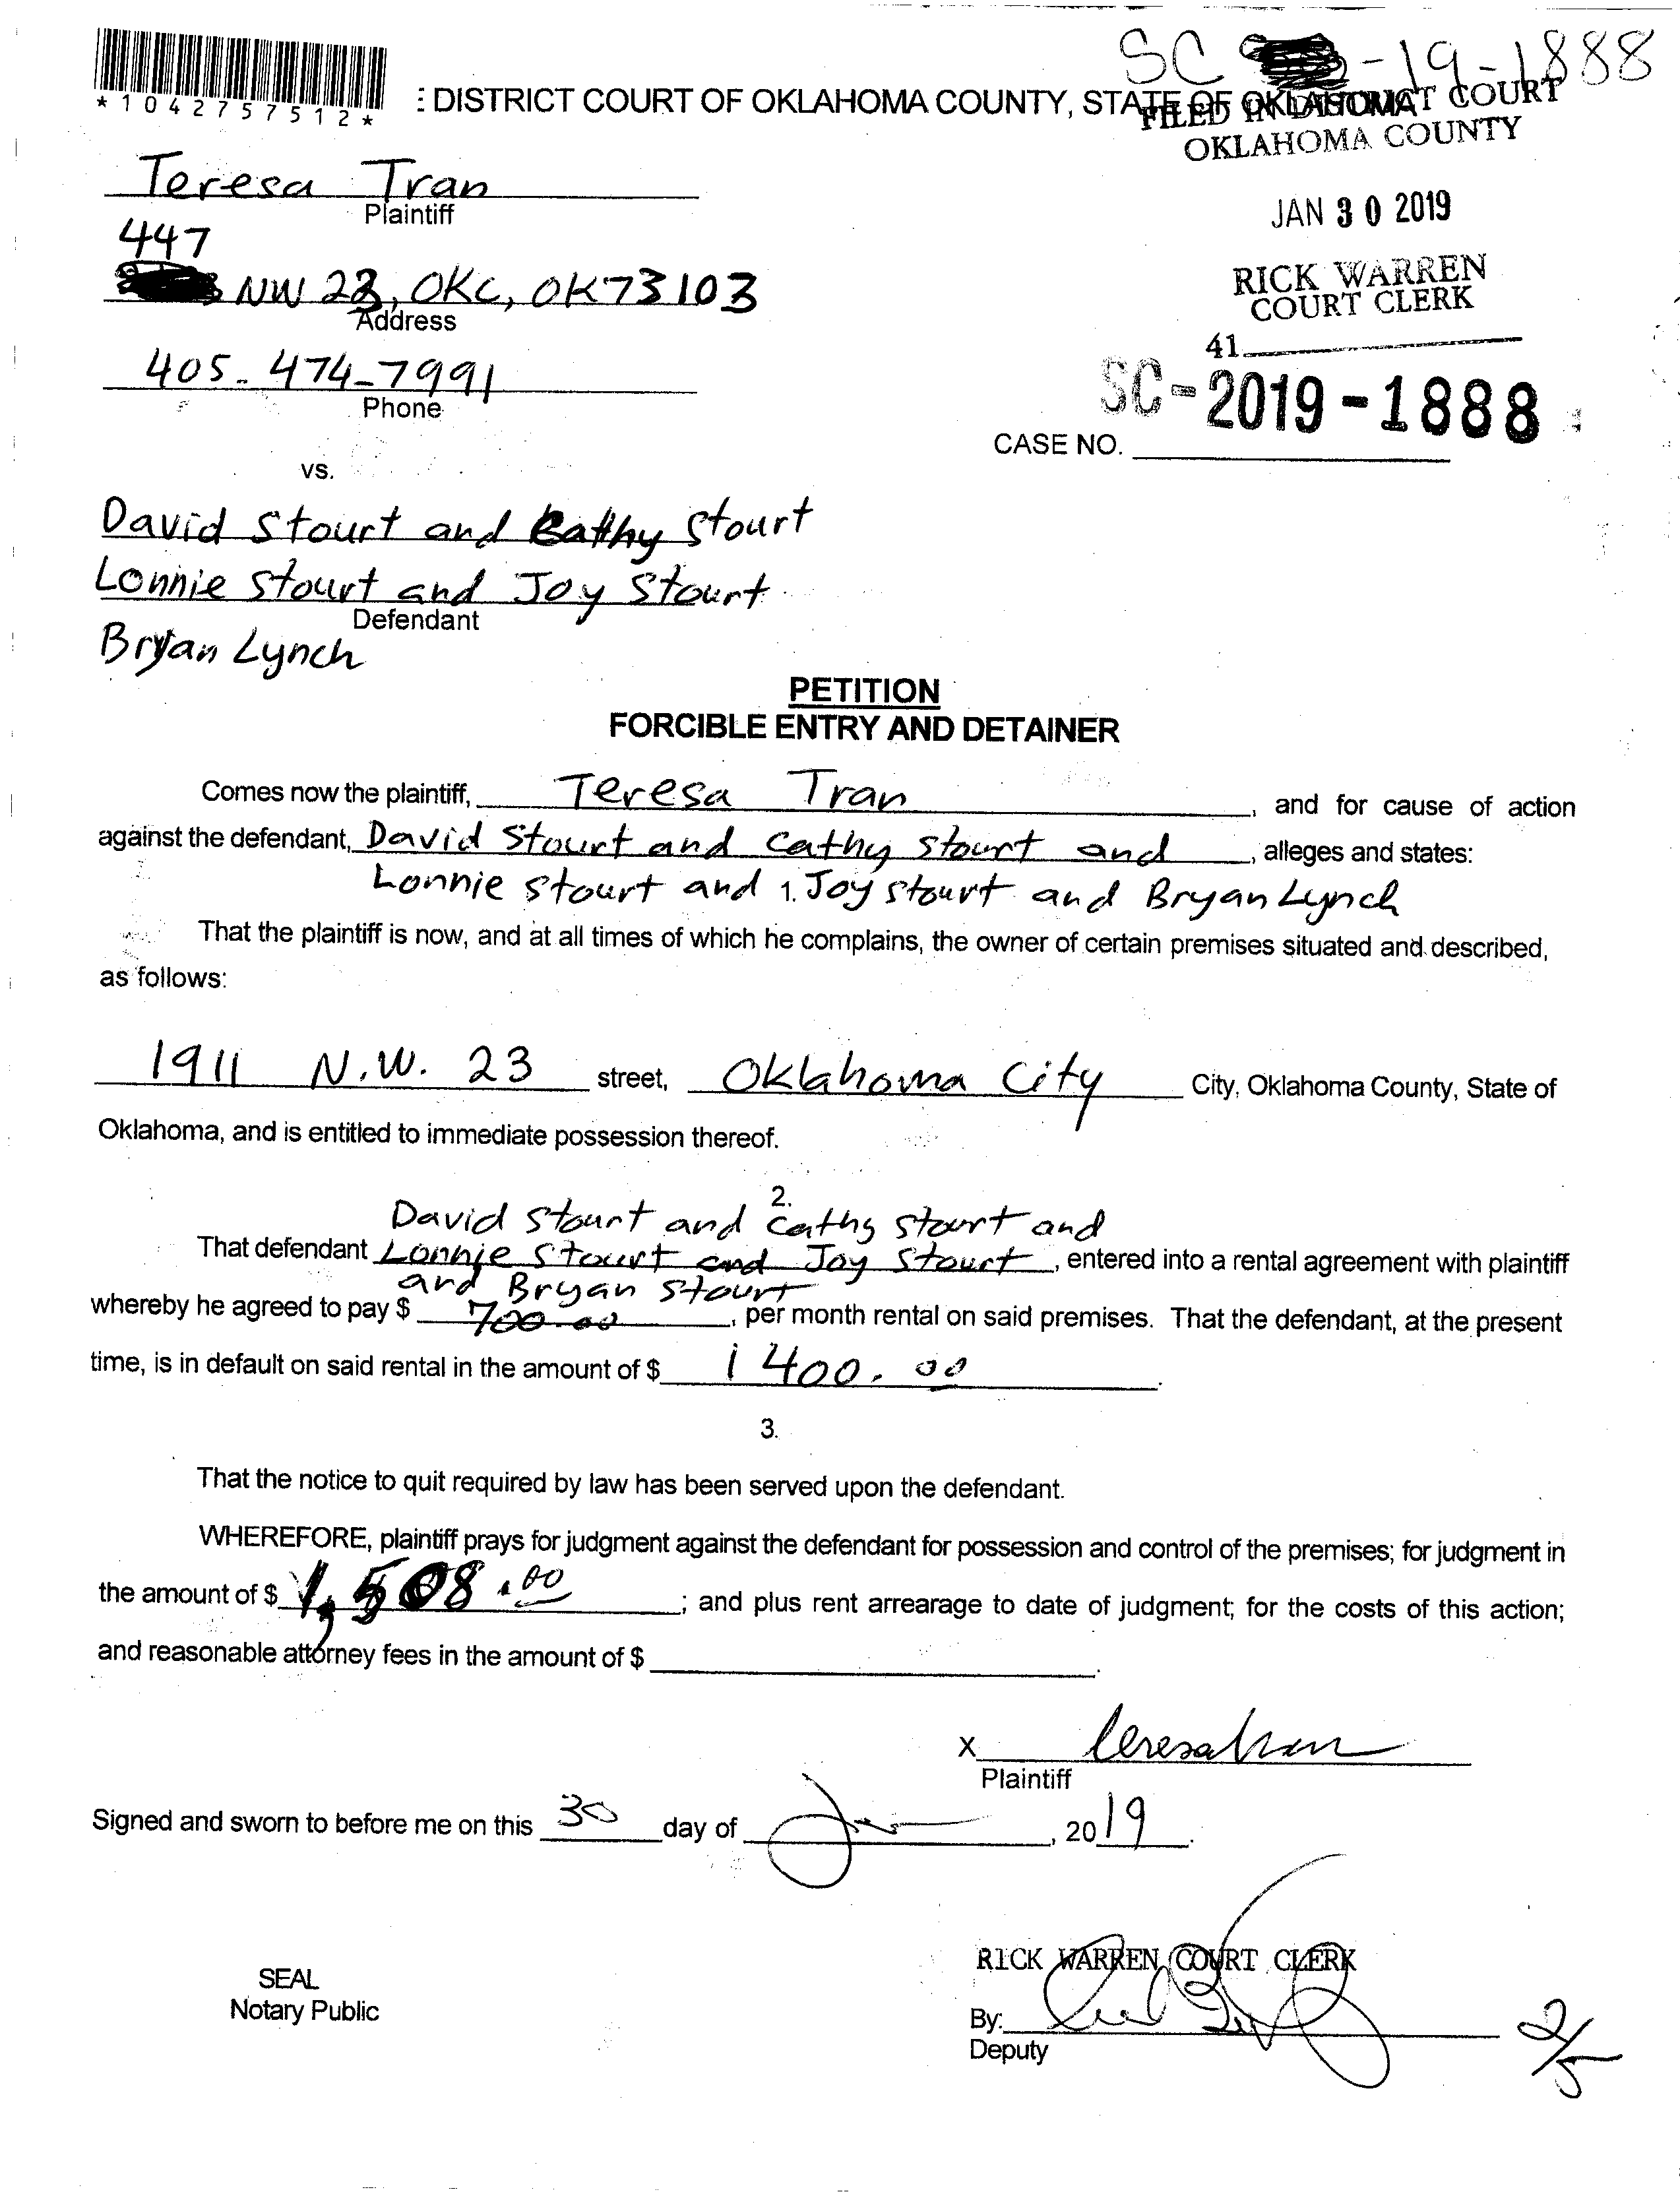 SC -19-1888
*1042757512*
: DISTRICT COURT OF OKLAHOMA COUNTY, STATE OF OKLAHOMA
FILED IN DISTRICT COURT
OKLAHOMA COUNTY
Teresa Tran
Plaintiff
JAN 30 2019
447
NW 23, OKC, OK 73103
Address
RICK WARREN
COURT CLERK
41
405-474-7991
Phone
SC-2019-1888
CASE NO.
vs.
David Stourt and Cathy Stourt
Lonnie Stourt and Joy Stourt
Defendant
Bryan Lynch
PETITION
FORCIBLE ENTRY AND DETAINER
Comes now the plaintiff, Teresa Tran, and for cause of action
against the defendant, David Stourt and Cathy Stourt and, alleges and states:
Lonnie Stourt and 1. Joy Stourt and Bryan Lynch
That the plaintiff is now, and at all times of which he complains, the owner of certain premises situated and described,
as follows:
1911 N.W. 23 street, Oklahoma City City, Oklahoma County, State of
Oklahoma, and is entitled to immediate possession thereof.
2.
David Stourt and Cathy Stourt and
That defendant Lonnie Stourt and Joy Stourt, entered into a rental agreement with plaintiff
and Bryan Stourt
whereby he agreed to pay $ 700.00, per month rental on said premises. That the defendant, at the present
time, is in default on said rental in the amount of $ 1400.00.
3.
That the notice to quit required by law has been served upon the defendant.
WHEREFORE, plaintiff prays for judgment against the defendant for possession and control of the premises; for judgment in
the amount of $ 1,508.00; and plus rent arrearage to date of judgment; for the costs of this action;
and reasonable attorney fees in the amount of $ .
X Teresa Tran
Plaintiff
Signed and sworn to before me on this 30 day of Jan, 2019.
RICK WARREN COURT CLERK
SEAL
Notary Public
By:
Deputy
2/5